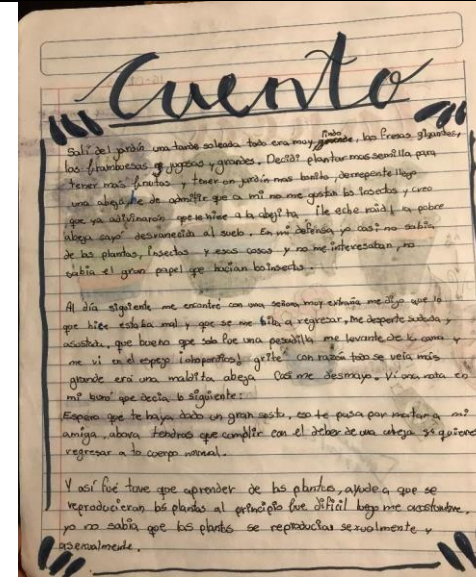 Cuento
Salí del jardín una tarde soleada todo era muy lindo, las fresas gigantes,
las frambuesas jugosas y grandes. Decidí plantar mas semilla para
tener más frutas y tener un jardín mas bonito, derrepente llego
una abeja, he de admitir que a mi no me gustan los insectos y creo
que ya adivinaron que le hice a la abejita. ¡le eche raid! la pobre
abeja cayó desvanecida al suelo. En mi defensa yo casi no sabia
de las plantas, insectos y esas cosas y no me interesaban, no
sabia el gran papel que hacian los insectos.
Al día siguiente me encontré con una señora muy extraña me dijo que lo
que hice estaba mal y que se me iba a regresar, me desperte sudada y
asustada, que bueno que solo fue una pesadilla me levante de la cama y
me vi en el espejo grite con razón todo se veía más
grande era una maldita abeja Casi me desmayo. Vi una nota en
mi buró que decia lo siguiente:
Espero que te haya dado un gran susto, eso te pasa por matar a mi
amiga, ahora tendras que cumplir con el deber de una abeja si quieres
regresar a tu cuerpo normal.
Y así fué tuve que aprender de las plantas, ayude a que se
reproducieran las plantas al principio fue dificil luego me acostumbre,
yo no sabia que las plantas se reproducian sexualmente y
asexualmente.